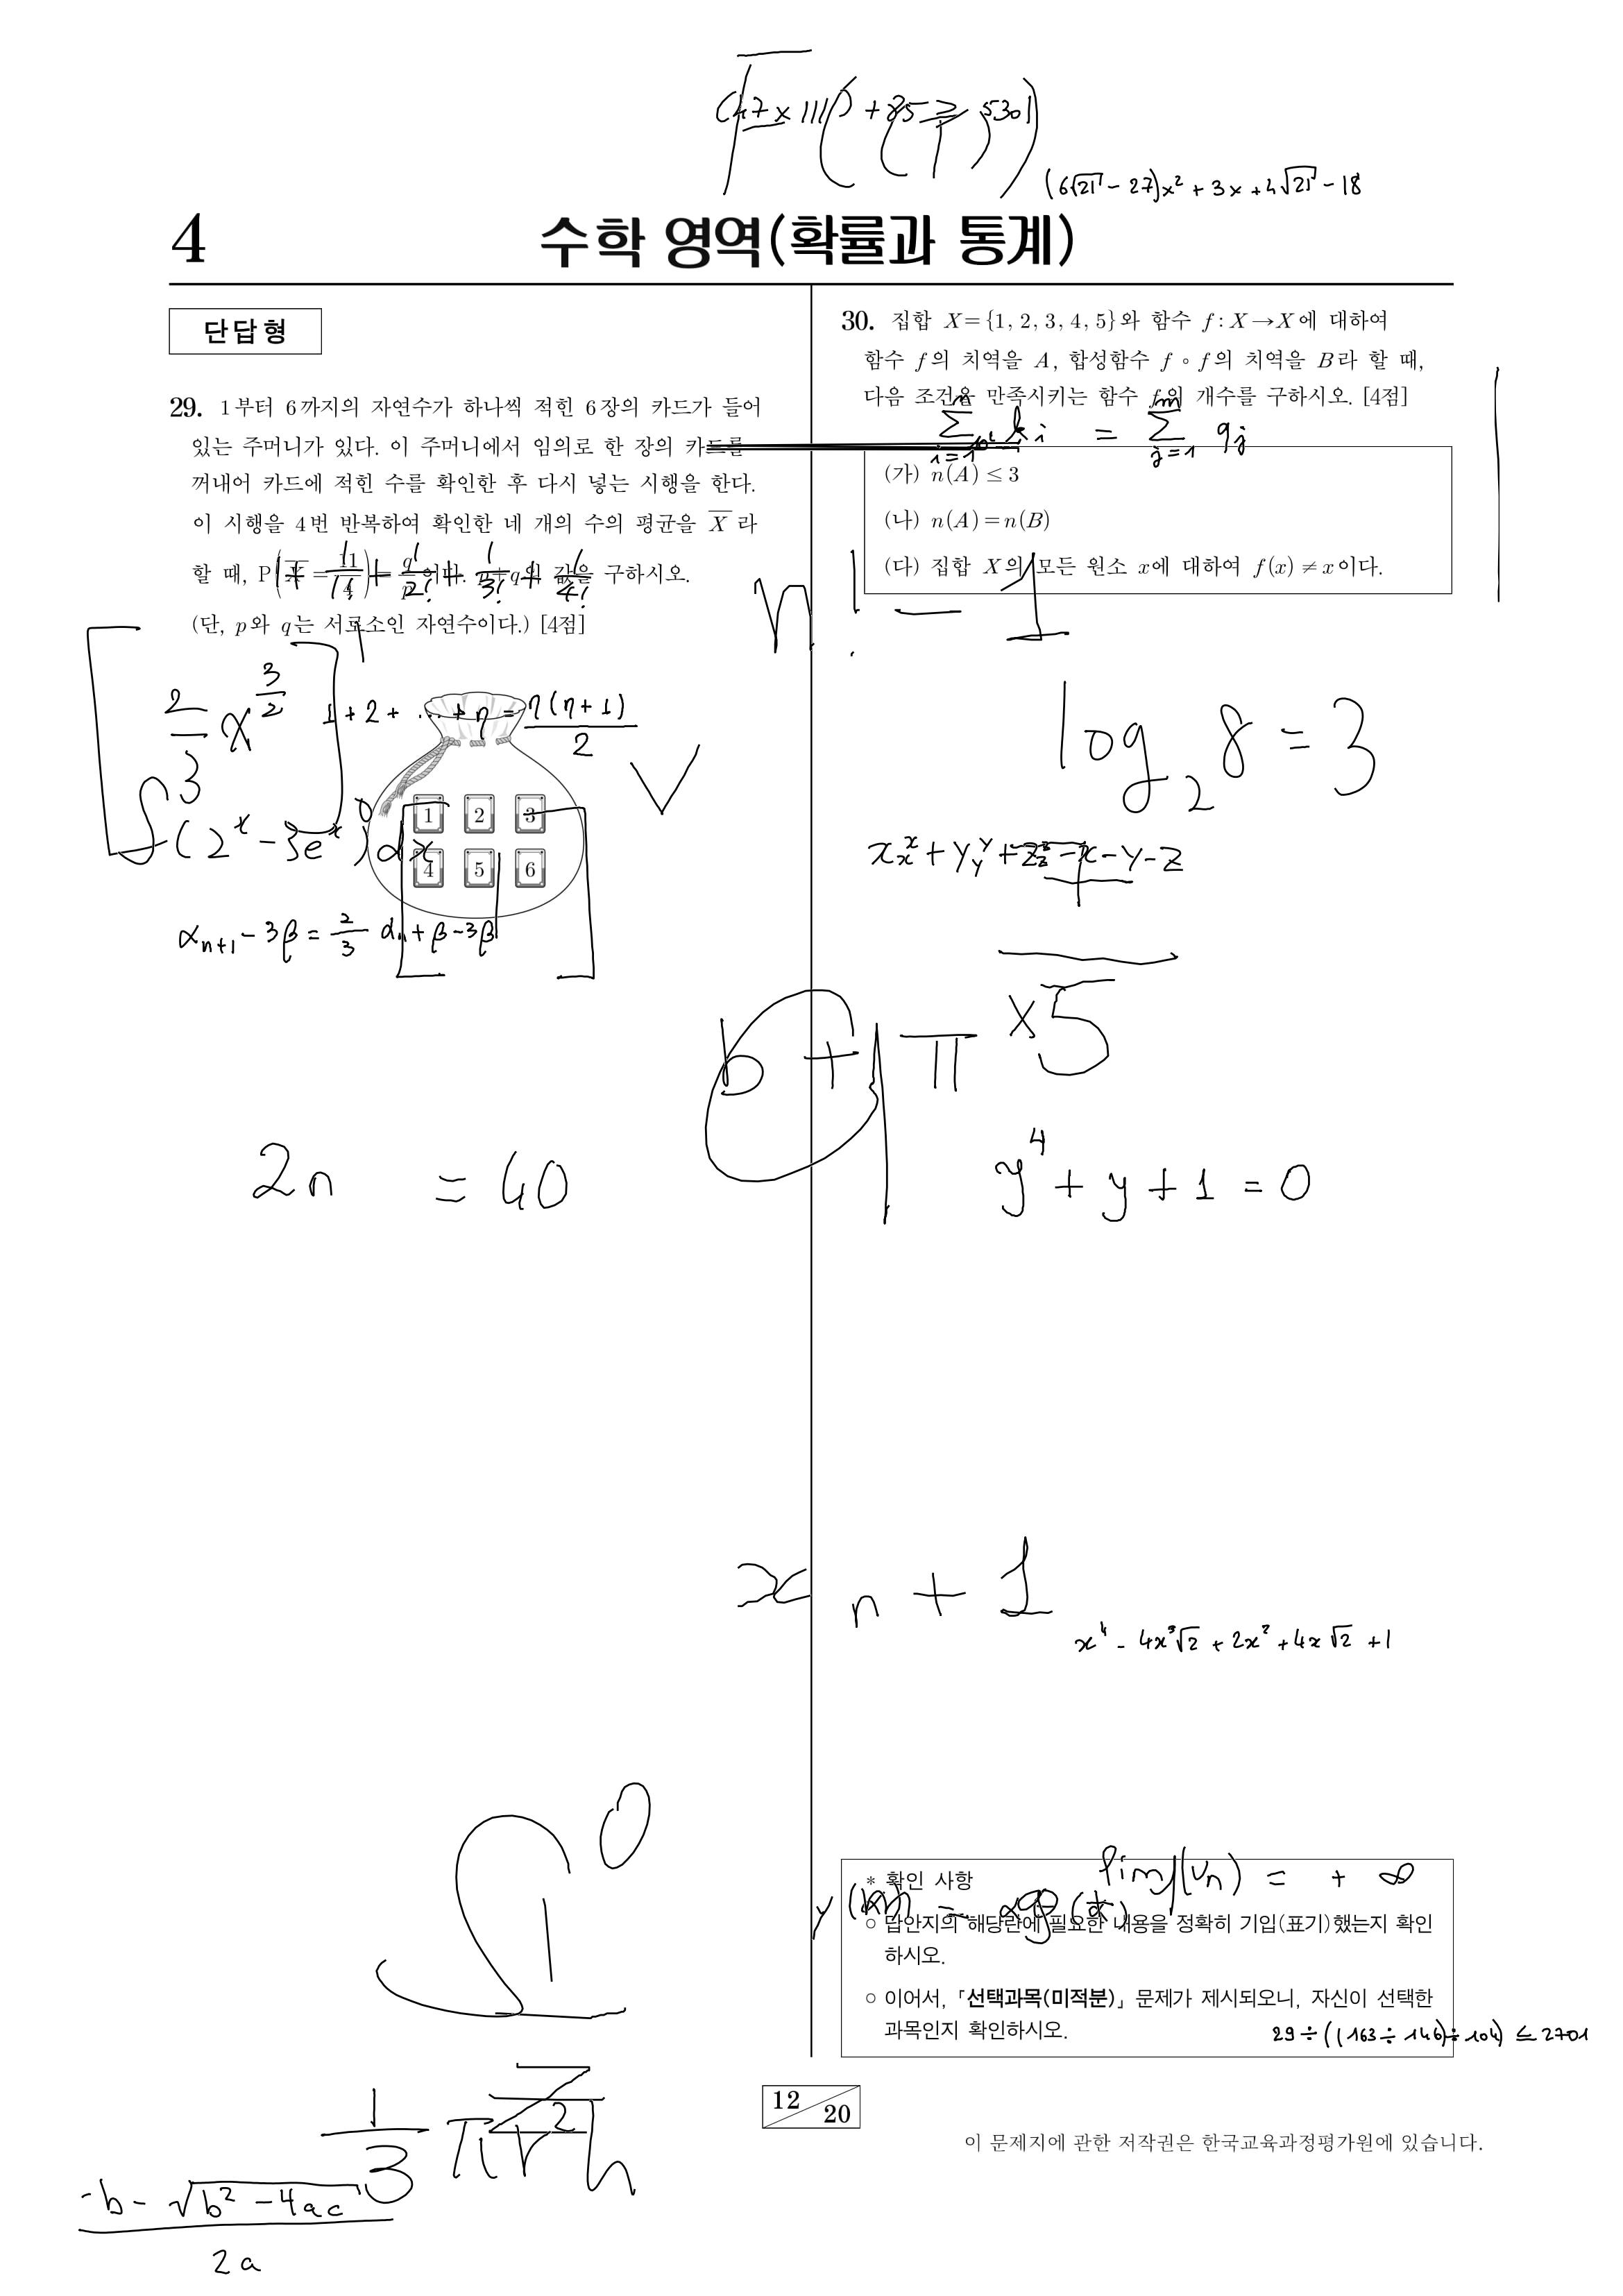 (6√21 - 27)x² + 3x + 4√21 - 18
4
수학 영역(확률과 통계)
단답형
29. 1부터 6까지의 자연수가 하나씩 적힌 6장의 카드가 들어
있는 주머니가 있다. 이 주머니에서 임의로 한 장의 카드를
꺼내어 카드에 적힌 수를 확인한 후 다시 넣는 시행을 한다.
이 시행을 4번 반복하여 확인한 네 개의 수의 평균을 X̄ 라
할 때, P(X̄ = 11/4) = q/p이다. p+q의 값을 구하시오.
(단, p와 q는 서로소인 자연수이다.) [4점]
[2/3 x^(3/2)]
1 + 2 + ... + n = n(n+1)/2
1 2 3
4 5 6
∫(2^x - 3e^x)dx
α_(n+1) - 3β = 2/3 α_n + β - 3β
2n = 40
30. 집합 X={1, 2, 3, 4, 5}와 함수 f : X→X에 대하여
함수 f의 치역을 A, 합성함수 f∘f의 치역을 B라 할 때,
다음 조건을 만족시키는 함수 f의 개수를 구하시오. [4점]
(가) n(A) ≤ 3
(나) n(A) = n(B)
(다) 집합 X의 모든 원소 x에 대하여 f(x) ≠ x이다.
n! - 1
log₂ 8 = 3
×5
b + π
y⁴ + y + 1 = 0
x n + 1
x⁴ - 4x³√2 + 2x² + 4x√2 + 1
lim (v_n) = + ∞
* 확인 사항
○ 답안지의 해당란에 필요한 내용을 정확히 기입(표기)했는지 확인
하시오.
○ 이어서, 「선택과목(미적분)」 문제가 제시되오니, 자신이 선택한
과목인지 확인하시오.
29 ÷ ((163 ÷ 146) ÷ 104) ≤ 2701
12
20
이 문제지에 관한 저작권은 한국교육과정평가원에 있습니다.
1/3 πr²h
(-b - √(b² - 4ac))/2a